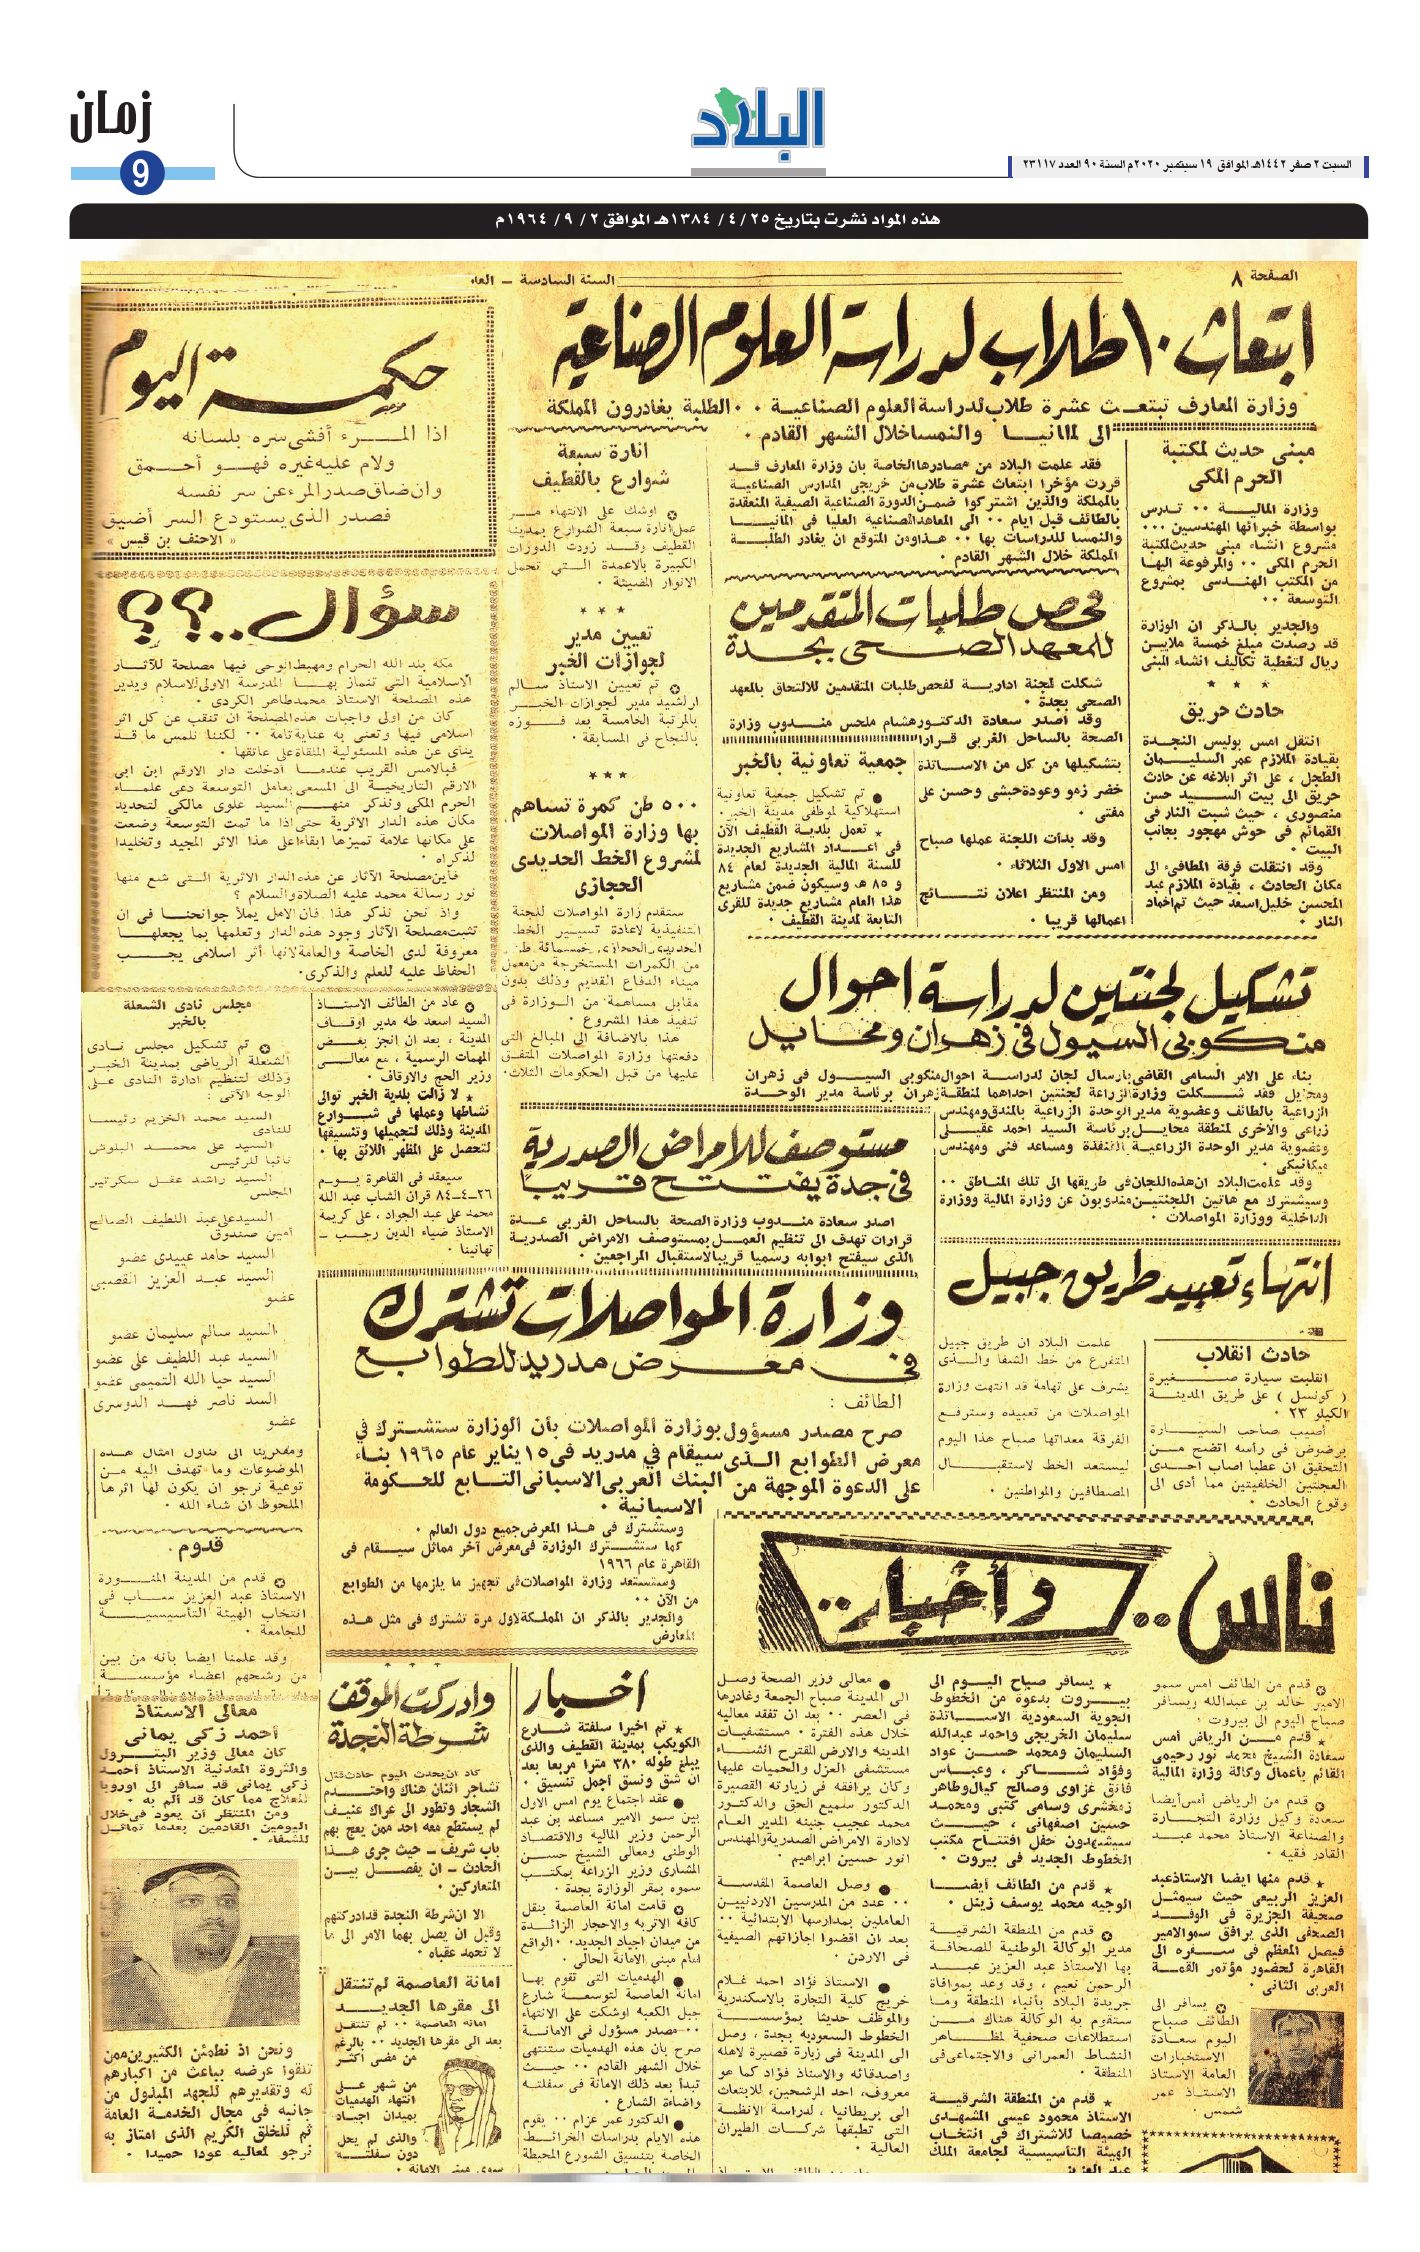 زمان
9
البلاد
السبت ٢ صفر ١٤٤٢هـ الموافق ١٩ سبتمبر ٢٠٢٠م السنة ٩٠ العدد ٢٣١١٧
هذه المواد نشرت بتاريخ ٢٥ /٤ /١٣٨٤هـ الموافق ٢ /٩ /١٩٦٤م
الصفحة ٨
السنة السادسة -
ابتعاث ١٠ طلاب لدراسة العلوم الصناعية
وزارة المعارف تبتعث عشرة طلاب لدراسة العلوم الصناعية ٠٠ الطلبة يغادرون المملكة
الى المانيا والنمسا خلال الشهر القادم ٠
فقد علمت البلاد من مصادرها الخاصة بان وزارة المعارف قد
قررت مؤخرا ابتعاث عشرة طلاب من خريجي المدارس الصناعية
بالمملكة والذين اشتركوا ضمن الدورة الصناعية الصيفية المنعقدة
بالطائف قبل ايام ٠٠ الى المعاهد الصناعية العليا فى المانيا
والنمسا للدراسات بها ٠٠ هذا ومن المتوقع ان يغادر الطلبة
المملكة خلال الشهر القادم ٠
مبنى حديث لمكتبة
الحرم المكى
وزارة المالية ٠٠ تدرس
بواسطة خبرائها المهندسين ٠٠٠
مشروع انشاء مبنى حديث لمكتبة
الحرم المكى ٠٠ والمرفوعة اليها
من المكتب الهندسى بمشروع
التوسعة ٠٠
والجدير بالذكر ان الوزارة
قد رصدت مبلغ خمسة ملايين
ريال لتغطية تكاليف انشاء المبنى
حادث حريق
انتقل امس بوليس النجدة
بقيادة الملازم عمر السليمان
الطجل ، على اثر ابلاغه عن حادث
حريق الى بيت السيد حسن
منصورى ، حيث شبت النار فى
القمائم فى حوش مهجور بجانب
البيت ٠
وقد انتقلت فرقة المطافىء الى
مكان الحادث ، بقيادة الملازم عبد
المحسن خليل اسعد حيث تم اخماد
النار ٠
فحص طلبات المتقدمين
للمعهد الصحى بجدة
شكلت لجنة ادارية لفحص طلبات المتقدمين للالتحاق بالمعهد
الصحى بجدة ٠
وقد أصدر سعادة الدكتور هشام ملحس مندوب وزارة
الصحة بالساحل الغربى قرارا
بتشكيلها من كل من الاساتذة
خضر زمو وعودة حبشى وحسن على
مفتى ٠
وقد بدأت اللجنة عملها صباح
امس الاول الثلاثاء ٠
ومن المنتظر اعلان نتائج
اعمالها قريبا ٠
جمعية تعاونية بالخبر
● تم تشكيل جمعية تعاونية
استهلاكية لموظفى مدينة الخبر ٠
★ تعمل بلدية القطيف الآن
فى اعداد المشاريع الجديدة
للسنة المالية الجديدة لعام ٨٤
و ٨٥ هـ وسيكون ضمن مشاريع
هذا العام مشاريع جديدة للقرى
التابعة لمدينة القطيف ٠
انارة سبعة
شوارع بالقطيف
اوشك على الانتهاء من
عمل انارة سبعة الشوارع بمدينة
القطيف وقد زودت الدورات
الكبيرة بالاعمدة التى تحمل
الانوار المضيئة ٠
★ ★ ★
تعيين مدير
لجوازات الخبر
تم تعيين الاستاذ سالم
ارلشيد مدير لجوازات الخبر
بالمرتبة الخامسة بعد فوزه
بالنجاح فى المسابقة ٠
★★★
٥٠٠ طن كمرة تساهم
بها وزارة المواصلات
لمشروع الخط الحديدى
الحجازى
ستقدم زارة المواصلات للجنة
التنفيذية لاعادة تسيير الخط
الحديدى الحجازى خمسمائة طن
من الكمرات المستخرجة من معمل
ميناء الدفاع القديم وذلك بدون
مقابل مساهمة من الوزارة فى
تنفيذ هذا المشروع ٠
هذا بالاضافة الى المبالغ التى
دفعتها وزارة المواصلات المتفق
عليها من قبل الحكومات الثلاث ٠
حكمة اليوم
اذا المرء أفشى سره بلسانه
ولام عليه غيره فهو أحمق
وان ضاق صدر المرء عن سر نفسه
فصدر الذى يستودع السر أضيق
« الاحنف بن قيس »
سؤال ..؟؟
مكة بلد الله الحرام ومهبط الوحى فيها مصلحة للآثار
الاسلامية التى تمتاز بها المدرسة الاولى للاسلام ويدير
هذه المصلحة الاستاذ محمد طاهر الكردى ٠
كان من اولى واجبات هذه المصلحة ان تنقب عن كل اثر
اسلامى فيها وتعنى به عناية تامة ٠٠ لكننا نلمس ما قد
يناى عن هذه المسئولية الملقاة على عاتقها ٠
فبالامس القريب عندما أدخلت دار الارقم ابن ابى
الارقم التاريخية الى المسعى بعامل التوسعة دعى علماء
الحرم المكى ونذكر منهم السيد علوى مالكى لتحديد
مكان هذه الدار الاثرية حتى اذا ما تمت التوسعة وضعت
على مكانها علامة تميزها ابقاء على هذا الاثر المجيد وتخليدا
لذكراه ٠
فاين مصلحة الآثار عن هذه الدار الاثرية التى شع منها
نور رسالة محمد عليه الصلاة والسلام ؟
واذ نحن نذكر هذا فان الامل يملأ جوانحنا فى ان
تثبت مصلحة الآثار وجود هذه الدار وتعلمها بما يجعلها
معروفة لدى الخاصة والعامة لانها أثر اسلامى يجب
الحفاظ عليه للعلم والذكرى٠
عاد من الطائف الاستاذ
السيد اسعد طه مدير اوقاف
المدينة ، بعد ان انجز بعض
المهمات الرسمية ، مع معالى
وزير الحج والاوقاف ٠
★ لا زالت بلدية الخبر توالى
نشاطها وعملها فى شوارع
المدينة وذلك لتجميلها وتنسيقها
لتحصل على المظهر اللائق بها ٠
سيعقد فى القاهرة يوم
٢٦-٤-٨٤ قران الشاب عبد الله
محمد على عبد الجواد ، على كريمة
الاستاذ ضياء الدين رجب -
تهانينا ٠
مجلس نادى الشعلة
بالخبر
تم تشكيل مجلس نادى
الشعلة الرياضى بمدينة الخبر
وذلك لتنظيم ادارة النادى على
الوجه الآتى :
السيد محمد الخريم رئيسا
للنادى
السيد على محمد البلوش
نائبا للرئيس
السيد راشد عقل سكرتير
المجلس
السيد على عبد اللطيف الصالح
أمين صندوق
السيد حامد عبيدى عضو
السيد عبد العزيز القصبى
عضو
السيد سالم سليمان عضو
السيد عبد اللطيف على عضو
السيد حيا الله التميمى عضو
السد ناصر فهد الدوسرى
عضو
الموضوعات وما تهدف اليه من
توعية نرجو ان يكون لها اثرها
الملحوظ ان شاء الله ٠
قدوم
قدم من المدينة المنورة
الاستاذ عبد العزيز ساب فى
انتخاب الهيئة التأسيسية
للجامعة ٠
وقد علمنا ايضا بانه من بين
من رشحهم اعضاء مؤسسة
تشكيل لجنتين لدراسة احوال
منكوبى السيول فى زهران ومحايل
بناء على الامر السامى القاضى بارسال لجان لدراسة احوال منكوبى السيول فى زهران
ومحايل فقد شكلت وزارة الزراعة لجنتين احداهما لمنطقة زهران برئاسة مدير الوحدة
الزراعية بالطائف وعضوية مدير الوحدة الزراعية بالمندق ومهندس
زراعى والاخرى لمنطقة محايل برئاسة السيد احمد عقيلى
وعضوية مدير الوحدة الزراعية بالقنفذة ومساعد فنى ومهندس
ميكانيكى ٠
وقد علمت البلاد ان هذه اللجان فى طريقها الى تلك المناطق ٠٠
وسيشترك مع هاتين اللجنتين مندوبون عن وزارة المالية ووزارة
الداخلية ووزارة المواصلات ٠
مستوصف للامراض الصدرية
فى جدة يفتتح قريبا
اصدر سعادة مندوب وزارة الصحة بالساحل الغربى عدة
قرارات تهدف الى تنظيم العمل بمستوصف الامراض الصدرية
الذى سيفتح ابوابه رسميا قريبا لاستقبال المراجعين ٠
انتهاء تعبيد طريق جبيل
علمت البلاد ان طريق جبيل
المتفرع من خط الشفا والذى
يشرف على تهامة قد انتهت وزارة
المواصلات من تعبيده وسترفع
الفرقة معداتها صباح هذا اليوم
ليستعد الخط لاستقبال
المصطافين والمواطنين ٠
حادث انقلاب
انقلبت سيارة صغيرة
( كونسل ) على طريق المدينة
الكيلو ٢٣ ٠
أصيب صاحب السيارة
برضوض فى رأسه اتضح من
التحقيق ان عطبا اصاب احدى
العجلتين الخلفيتين مما أدى الى
وقوع الحادث ٠
وزارة المواصلات تشترك
فى معرض مدريد للطوابع
الطائف :
صرح مصدر مسؤول بوزارة المواصلات بأن الوزارة ستشترك في
معرض الطوابع الذى سيقام في مدريد فى ١٥ يناير عام ١٩٦٥ بناء
على الدعوة الموجهة من البنك العربى الاسبانى التابع للحكومة
الاسبانية ٠
وستشترك فى هذا المعرض جميع دول العالم ٠
كما ستشترك الوزارة فى معرض آخر مماثل سيقام فى
القاهرة عام ١٩٦٦
وستستعد وزارة المواصلات فى تجهيز ما يلزمها من الطوابع
من الآن ٠٠
والجدير بالذكر ان المملكة لاول مرة تشترك فى مثل هذه
المعارض
ناس .. وأخبار ..
قدم من الطائف امس سمو
الامير خالد بن عبدالله ويسافر
صباح اليوم الى بيروت ٠
★ قدم من الرياض أمس
سعادة الشيخ محمد نور رحيمى
القائم بأعمال وكالة وزارة المالية
قدم من الرياض أمس أيضا
سعادة وكيل وزارة التجارة
والصناعة الاستاذ محمد عبد
القادر فقيه ٠
★ قدم منها ايضا الاستاذ عبد
العزيز الربيعى حيث سيمثل
صحيفة الجزيرة فى الوفد
الصحفى الذى يرافق سمو الامير
فيصل المعظم فى سفره الى
القاهرة لحضور مؤتمر القمة
العربى الثانى ٠
يسافر الى
الطائف صباح
اليوم سعادة
الاستخبارات
العامة الاستاذ
الاستاذ عمر
شمس ٠
★ يسافر صباح اليوم الى
بيروت بدعوة من الخطوط
الجوية السعودية الاساتذة
سليمان الخريجى واحمد عبدالله
السليمان ومحمد حسن عواد
وفؤاد شاكر ، وعباس
فائق غزاوى وصالح كيال وطاهر
زمخشرى وسامى كتبى ومحمد
حسين اصفهانى ، حيث
سيشهدون حفل افتتاح مكتب
الخطوط الجديد فى بيروت ٠
★ قدم من الطائف أيضا
الوجيه محمد يوسف زينل ٠
قدم من المنطقة الشرقية
مدير الوكالة الوطنية للصحافة
بها الاستاذ عبد العزيز عبد
الرحمن نعيم ، وقد وعد بموافاة
جريدة البلاد بأنباء المنطقة وما
ستقوم به الوكالة هناك من
استطلاعات صحفية لمظاهر
النشاط العمرانى والاجتماعى فى
المنطقة ٠
★ قدم من المنطقة الشرقية
الاستاذ محمود عيسى المشهدى
خصيصا للاشتراك فى انتخاب
الهيئة التأسيسية لجامعة الملك
عبد العزيز
● معالى وزير الصحة وصل
الى المدينة صباح الجمعة وغادرها
فى العصر ٠٠ بعد ان تفقد معاليه
خلال هذه الفترة ٠ مستشفيات
المدينه والارض المقترح انشاء
مستشفى العزل والحميات عليها
وكان يرافقه في زيارته القصيرة
الدكتور سميع الحق والدكتور
محمد عجيب جنينه المدير العام
لادارة الامراض الصدرية والمهندس
انور حسين ابراهيم ٠
● وصل العاصمة المقدسة
٠٠ عدد من المدرسين الاردنيين
العاملين بمدارسها الابتدائية ٠٠
بعد ان اقضوا اجازاتهم الصيفية
فى الاردن ٠
● الاستاذ فؤاد احمد غلام
خريج كلية التجارة بالاسكندرية
والموظف حديثا بمؤسسة
الخطوط السعودية بجدة ، وصل
الى المدينة فى زيارة قصيرة لاهله
واصدقائه والاستاذ فؤاد كما هو
معروف، احد المرشحين، للابتعاث
الى بريطانيا ، لدراسة الانظمة
التى تطبقها شركات الطيران
العالية ٠
اخبار
★ تم اخيرا سلفتة شارع
الكويكب بمدينة القطيف والذى
يبلغ طوله ٣٨٠ مترا مربعا بعد
ان شق ونسق أجمل تنسيق ٠
● عقد اجتماع يوم امس الاول
بين سمو الامير مساعد بن عبد
الرحمن وزير المالية والاقتصاد
الوطنى ومعالى الشيخ حسن
المشارى وزير الزراعة بمكتب
سموه بمقر الوزارة بجدة ٠
قامت امانة العاصمة بنقل
كافة الاتربه والاحجار الزائدة
من ميدان اجياد الجديد٠ ٠الواقع
امام مبنى الامانة الحالى ٠
● الهدميات التى تقوم بها
امانة العاصمة لتوسعة شارع
جبل الكعبه اوشكت على الانتهاء
٠٠ مصدر مسؤول فى الامانة
صرح بان هذه الهدميات ستنتهى
خلال الشهر القادم ٠٠ حيث
تبدأ بعد ذلك الامانة فى سفلته
واضاءة الشارع ٠
● الدكتور عمر عزام ٠٠ يقوم
هذه الايام بدراسات الخرائط
الخاصة بتنسيق الشورع المحيطة
وادركت الموقف
شرطة النجدة
كاد ان يحدث اليوم حادث قتل
تشاجر اثنان هناك واحتدم
الشجار وتطور الى عراك عنيف
لم يستطع معه احد ممن يعج بهم
باب شريف - حيث جرى هذا
الحادث - ان يفصل بين
المتعاركين ٠
الا ان شرطة النجدة قد ادركتهم
وقبل ان يصل بهما الامر الى ما
لا تحمد عقباه ٠
امانة العاصمة لم تنتقل
الى مقرها الجديد
امانه العاصمه ٠٠ لم تنتقل
بعد الى مقرها الجديد ٠٠ بالرغم
من مضى اكثر
من شهر على
انتهاء الهدميات
بميدان اجياد
والذى لم يحل
دون سفلته
سوى مبنى الامانة ٠
معالى الاستاذ
أحمد زكى يمانى
كان معالى وزير البترول
والثروة المعدنية الاستاذ أحمد
زكى يمانى قد سافر الى اوروبا
للعلاج مما كان قد ألم به ٠
ومن المنتظر ان يعود فى خلال
اليومين القادمين بعدما تماثل
للشفاء ٠
ونحن اذ نطمئن الكثيرين ممن
تلقوا عرضه بباعث من اكبارهم
له وتقديرهم للجهد المبذول من
جانبه فى مجال الخدمة العامة
ثم للخلق الكريم الذى امتاز به
نرجو لمعاليه عودا حميدا ٠